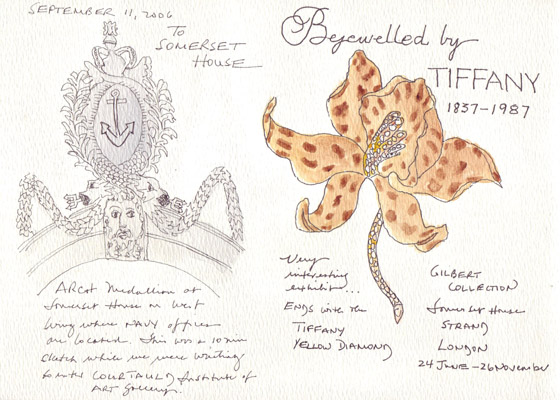 SEPTEMBER 11, 2006
TO
SOMERSET
HOUSE
Bejewelled by
TIFFANY
1837-1987
ARCH Medallion at
Somerset House on West
Wing where NAVY offices
are located. This was a 10 min
sketch while we were waiting
to enter COURTAULD Institute of
ART Gallery.
Very
interesting
exhibit...
ENDS with the
TIFFANY
YELLOW DIAMOND
GILBERT
COLLECTION
Somerset House
STRAND
LONDON
24 JUNE - 26 NOVEMBER